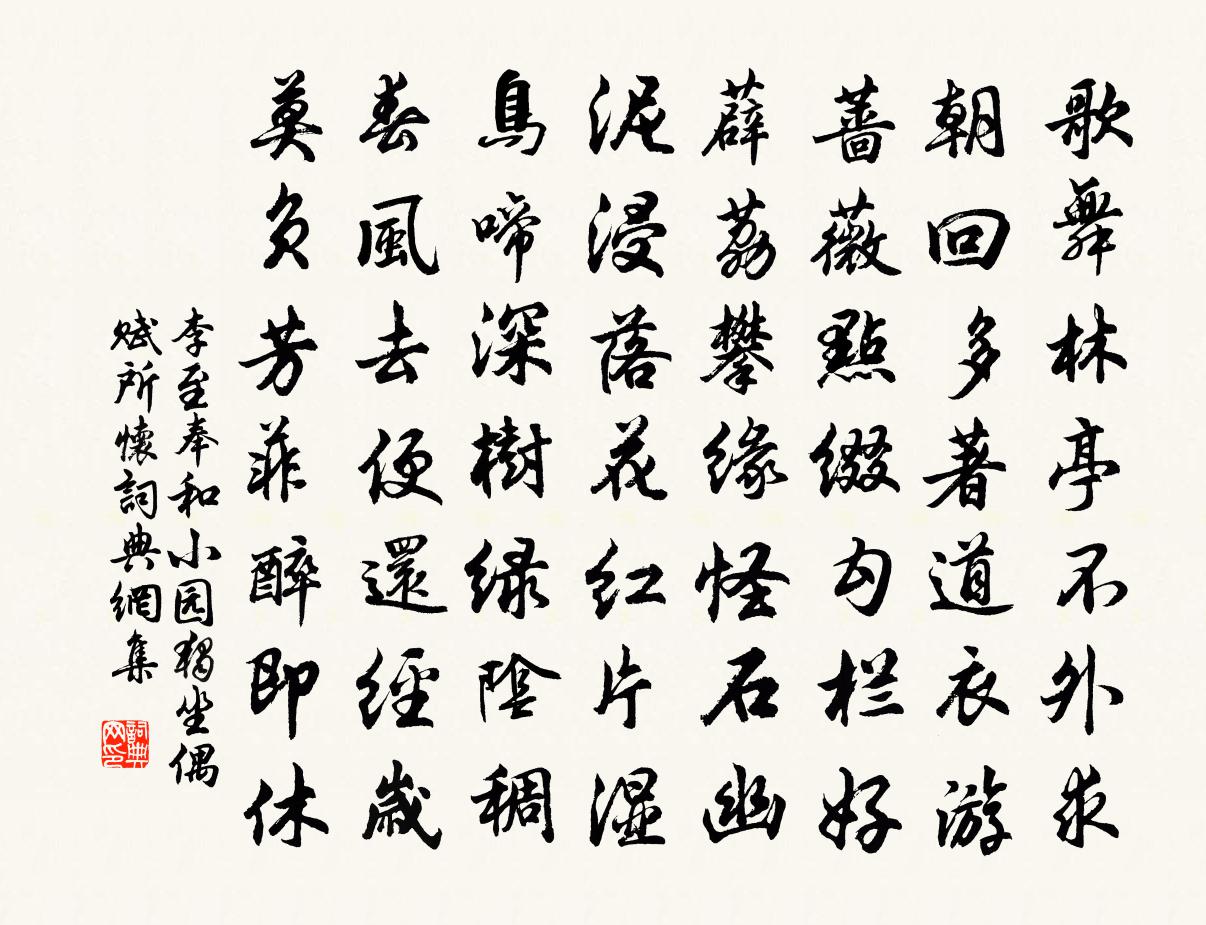 歌舞林亭不外求
朝回多著道衣游
蔷薇點缀勾栏好
薜荔攀缘怪石幽
泥浸落花红片湿
鳥啼深樹绿陰稠
春風去便還經歲
莫負芳菲醉即休
李至奉和小园獨坐偶
赋所懷詞典網集
詞典
网印